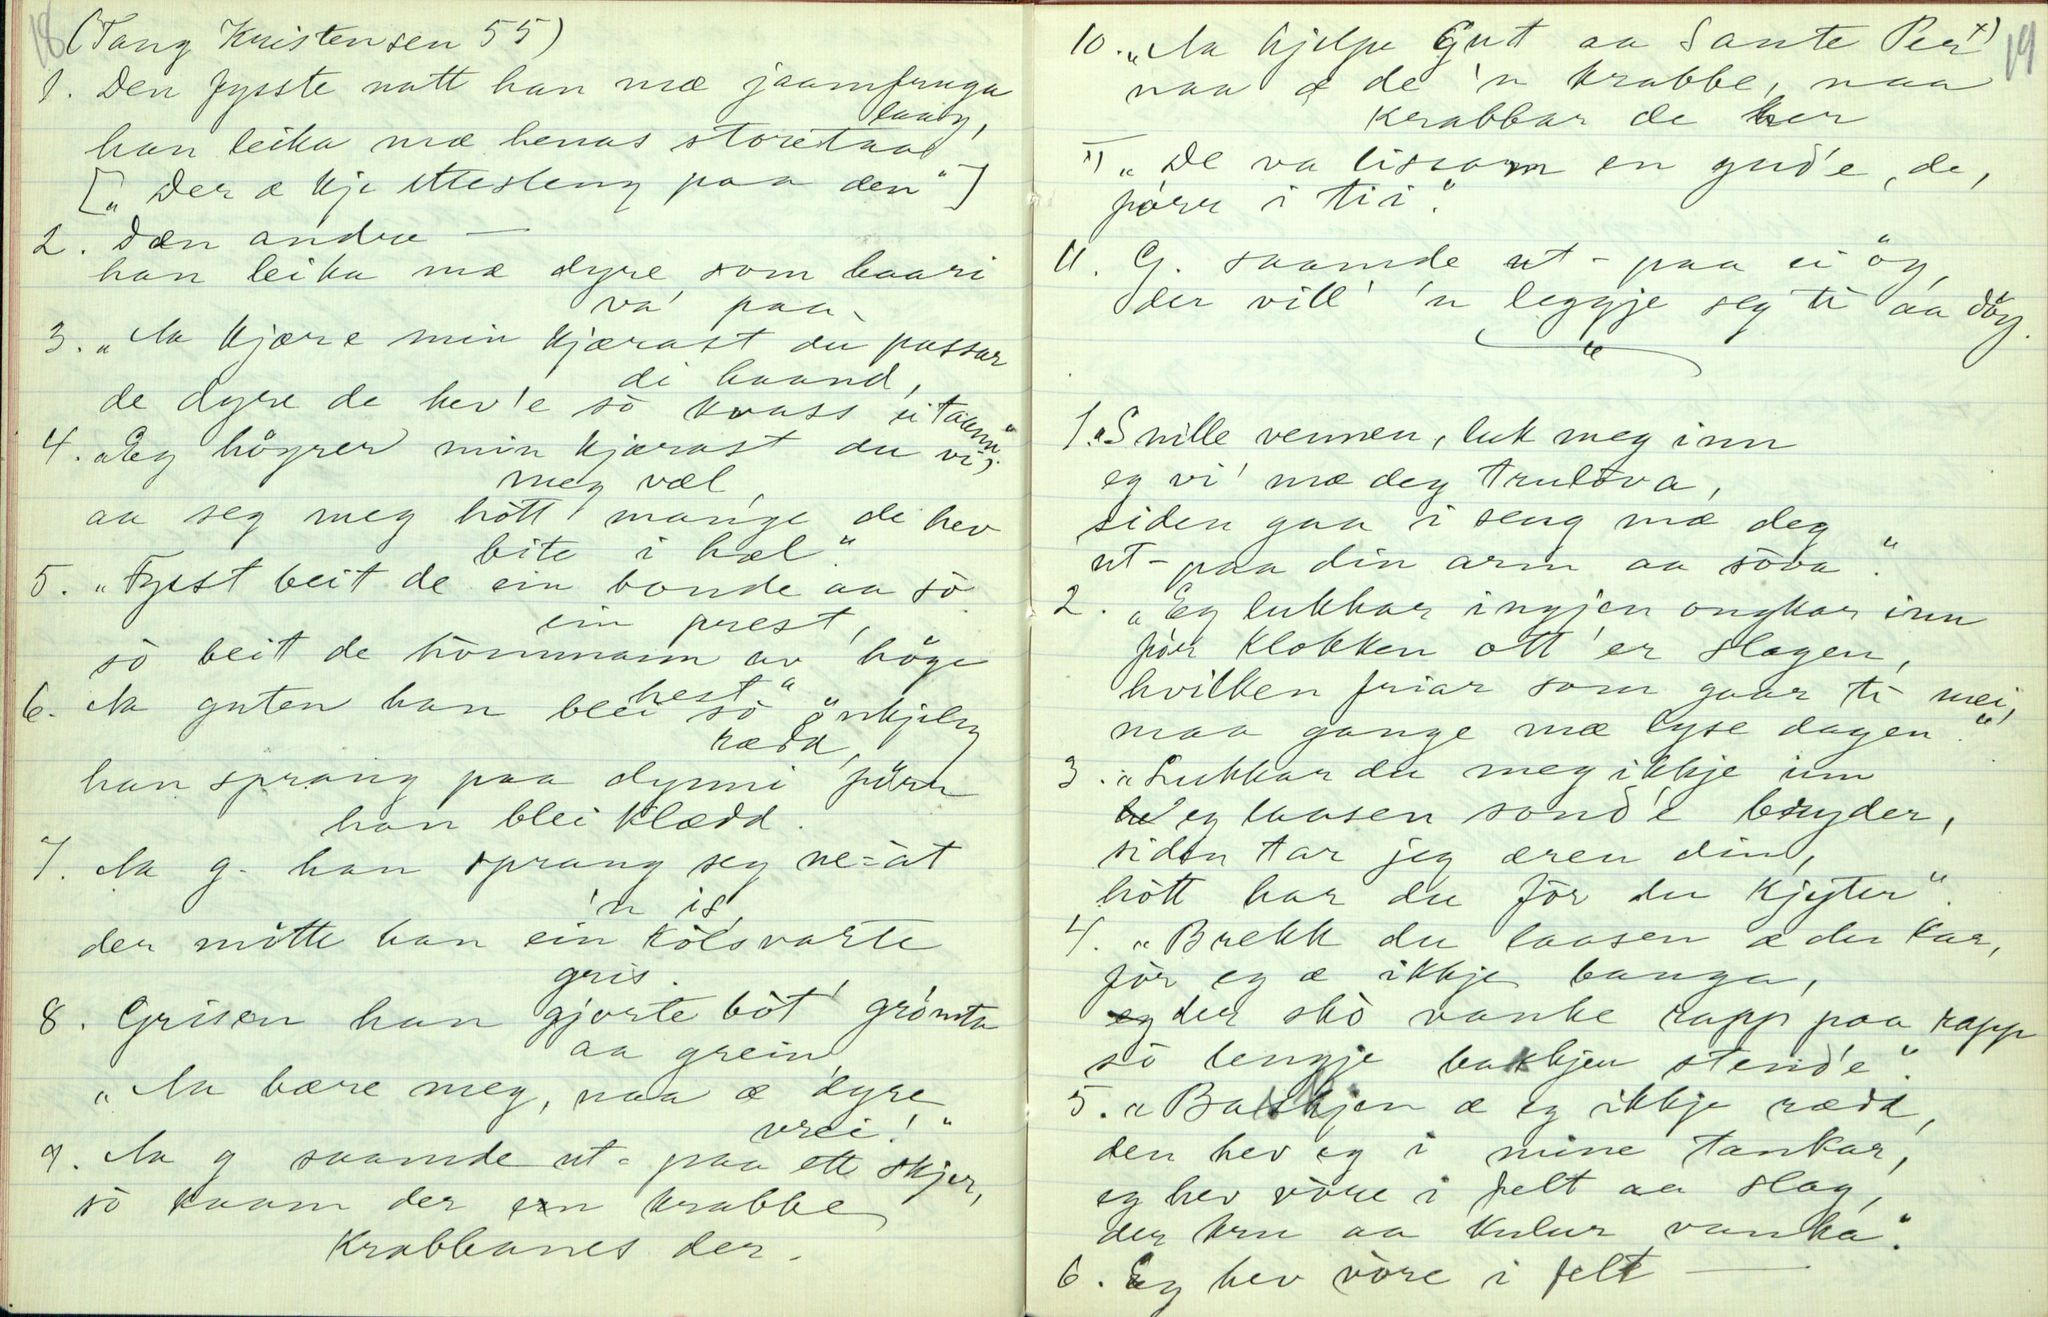 18 (Tang Kristensen 55)
1. Den fysste natt han mæ jaamfruga
laag,
han leika mæ henas storetaa
[„Der æ kje ettesleng paa den“]
2. Den andre —
han leika mæ dyre som haari
va' paa
3. „Aa kjære min kjærast du passar
di haand,
de dyre de hev'e sò kvass ei tånn“.
4. „Eg högrer min kjærast du vi'
meg væl,
aa seg meg hòtt mange de hev
bite i hæl“.
5. „Fysst beit de ein bonde aa sò
ein prest,
sò beit de hòmmann av höge
hest“
6. Aa guten han blei sò önkjeleg
rædd,
han sprang paa dynni förr
han blei klædd.
7. Aa g. han sprang seg ne-àt
'n is,
der mötte han ein kòlsvarte
gris.
8. Grisen han gjorte bòt' grömta
aa grein
„Aa bære meg, naa æ dyre
vrei!“
9. Aa g saamde ut-paa ett skjer,
sò kaam der ein krabbe
krabbanes der.
19
10. „Aa hjelpe Gut aa Sante Per x)
naa æ de 'n krabbe, naa
krabbar de her
x) „De va lissom en gud'e, de,
förr i tii“.
11. G. saamde ut-paa ei ög,
der vill' 'n leggje seg ti aa dög.
1. „Snille vennen, luk meg inn
eg vi' mæ deg trulova,
siden gaa i seng mæ deg
ut-paa din arm aa sòva“.
2. „Eg lukkar ingjen ongkar inn
förr klokken ott' er slagen,
hvilken friar som gaar ti mei,
maa gange mæ lyse dagen“.
3. „Lukkar du meg ikkje inn
eg laasen sond'e bryder,
siden tar jeg æren din,
hòtt har du för du kjyter“.
4. „Brekk du laasen æ du kar,
för eg æ ikkje banga,
der skò vanke rapp paa rapp
sò lengje bakkjen stend'e“.
5. „Bakkjen æ eg ikkje rædd,
den hev eg i mine tankar,
eg hev vòre i felt aa slag,
der kru aa kulur vanka“.
6. Eg hev vòre i felt —